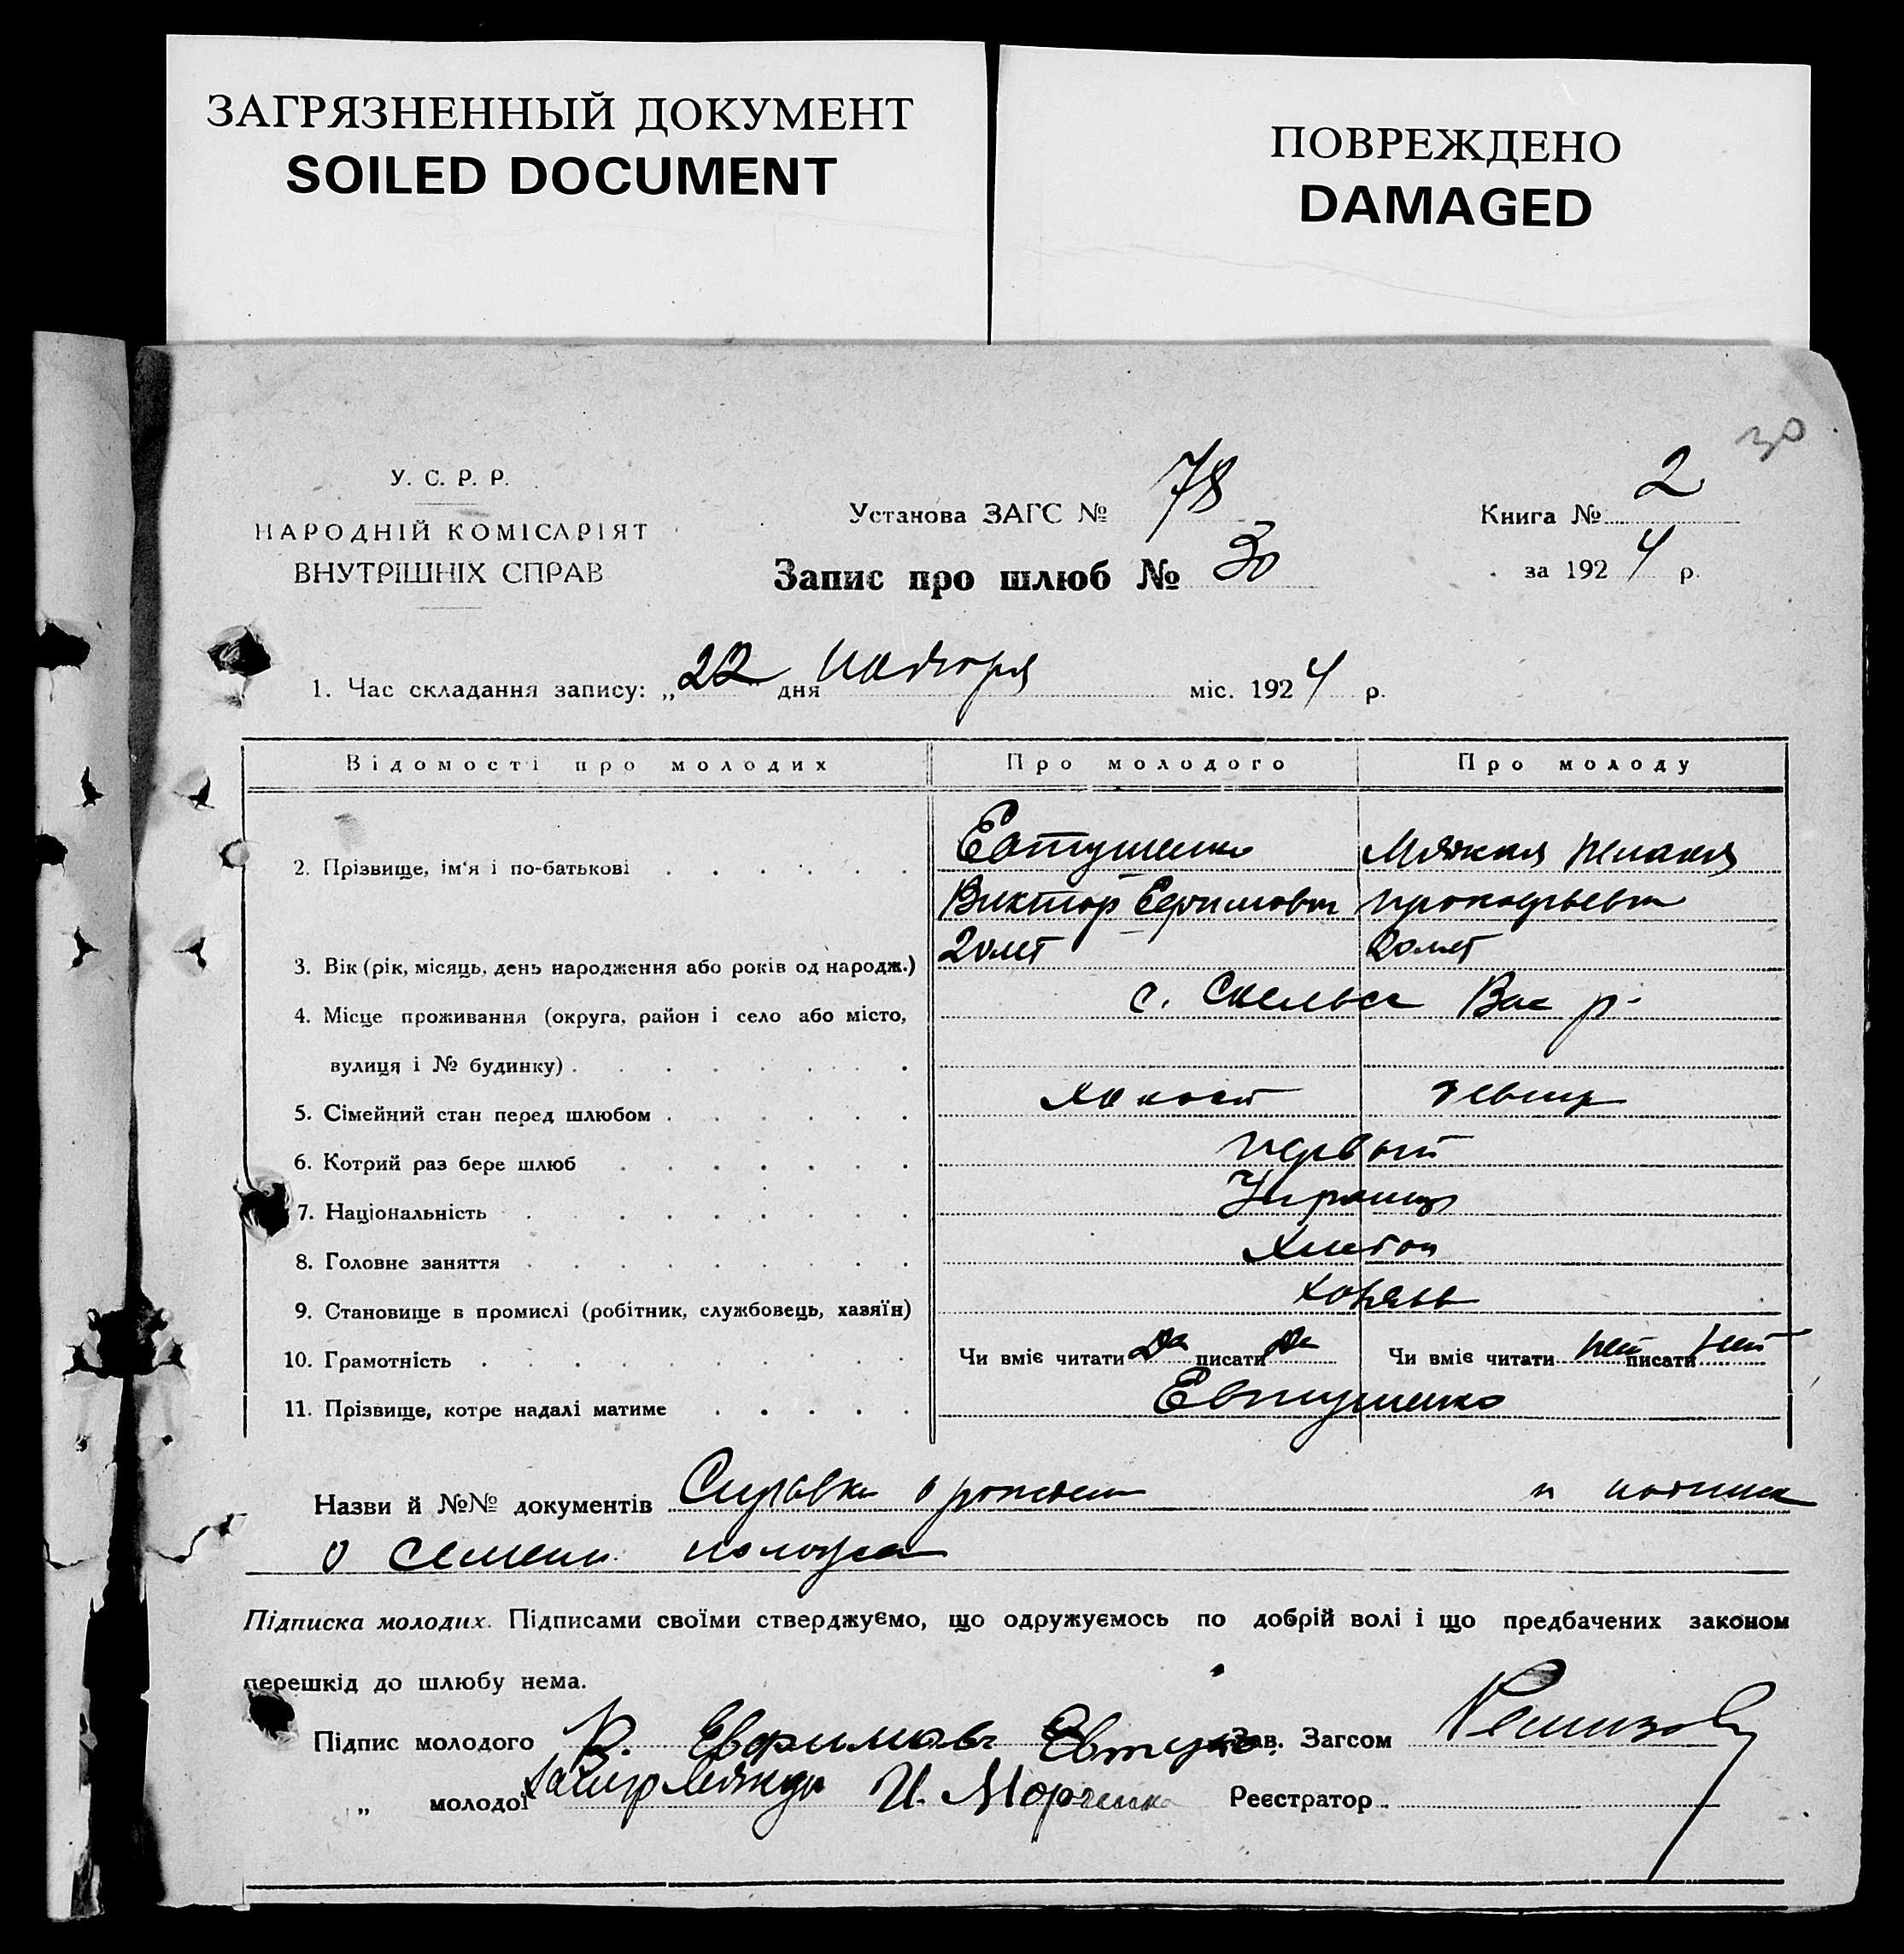 ЗАГРЯЗНЕННЫЙ ДОКУМЕНТ
SOILED DOCUMENT
ПОВРЕЖДЕНО
DAMAGED
30
У. С. Р. Р.
НАРОДНІЙ КОМІСАРІЯТ
ВНУТРІШНІХ СПРАВ
Установа ЗАГС № 78
Запис про шлюб № 30
Книга № 2
за 1924 р.
1. Час складання запису: „22" дня ноября міс. 1924 р.
Відомості про молодих Про молодого Про молоду
2. Прізвище, ім'я і по-батькові Евтушенко Мягкая
Виктор Ефимович Прокофьевна
3. Вік (рік, місяць, день народження або років од народж.) 20 лет 20 лет
4. Місце проживання (округа, район і село або місто, с. Скелька Вас р.
вулиця і № будинку)
5. Сімейний стан перед шлюбом холост девица
6. Котрий раз бере шлюб первый
7. Національність Украинцы
8. Головне заняття
9. Становище в промислі (робітник, службовець, хазяїн) хозяев
10. Грамотність Чи вміє читати Да писати Да Чи вміє читати нет писати нет
11. Прізвище, котре надалі матиме Евтушенко
Назви й №№ документів Справка о рожден и подписка
о семейн. полож
Підписка молодих. Підписами своїми стверджуємо, що одружуємось по добрій волі і що предбачених законом
перешкід до шлюбу нема.
Підпис молодого В. Евфимов Евтуш. Зав. Загсом
„ молодої И. Марченко Реєстратор